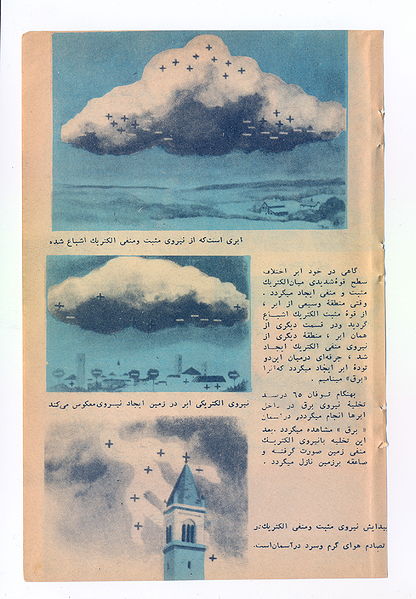 ابری است‌که از نیروی مثبت ومنفی الکتریك اشباع شده
گاهی در خود ابر اختلاف
سطح قوهٔ‌شدیدی میان‌الکتریك
مثبت و منفی ایجاد میگردد .
وقتی منطقهٔ وسیعی از ابر ،
از قوهٔ مثبت الکتریك اشباع
گردید ودر قسمت دیگری از
همان ابر ، منطقهٔ دیگری از
نیروی منفی الکتریك ایجاد
شد ، جرقه‌ای درمیان این‌دو
تودهٔ ابر ایجاد میگردد که‌آنرا
«برق» مینامیم .
نیروی الکتریکی ابر در زمین ایجاد نیروی‌معکوس می‌کند
بهنگام توفان ٦٥ درصد
تخلیه نیروی برق در داخل
ابرها انجام میگرددو درآسمان
« برق » مشاهده میگردد .بعد
این تخلیه بانیروی الکتریك
منفی زمین صورت گرفته و
صاعقه برزمین نازل میگردد .
پیدایش نیروی مثبت ومنفی الکتریك‌در
تصادم هوای گرم وسرد درآسمان‌است.